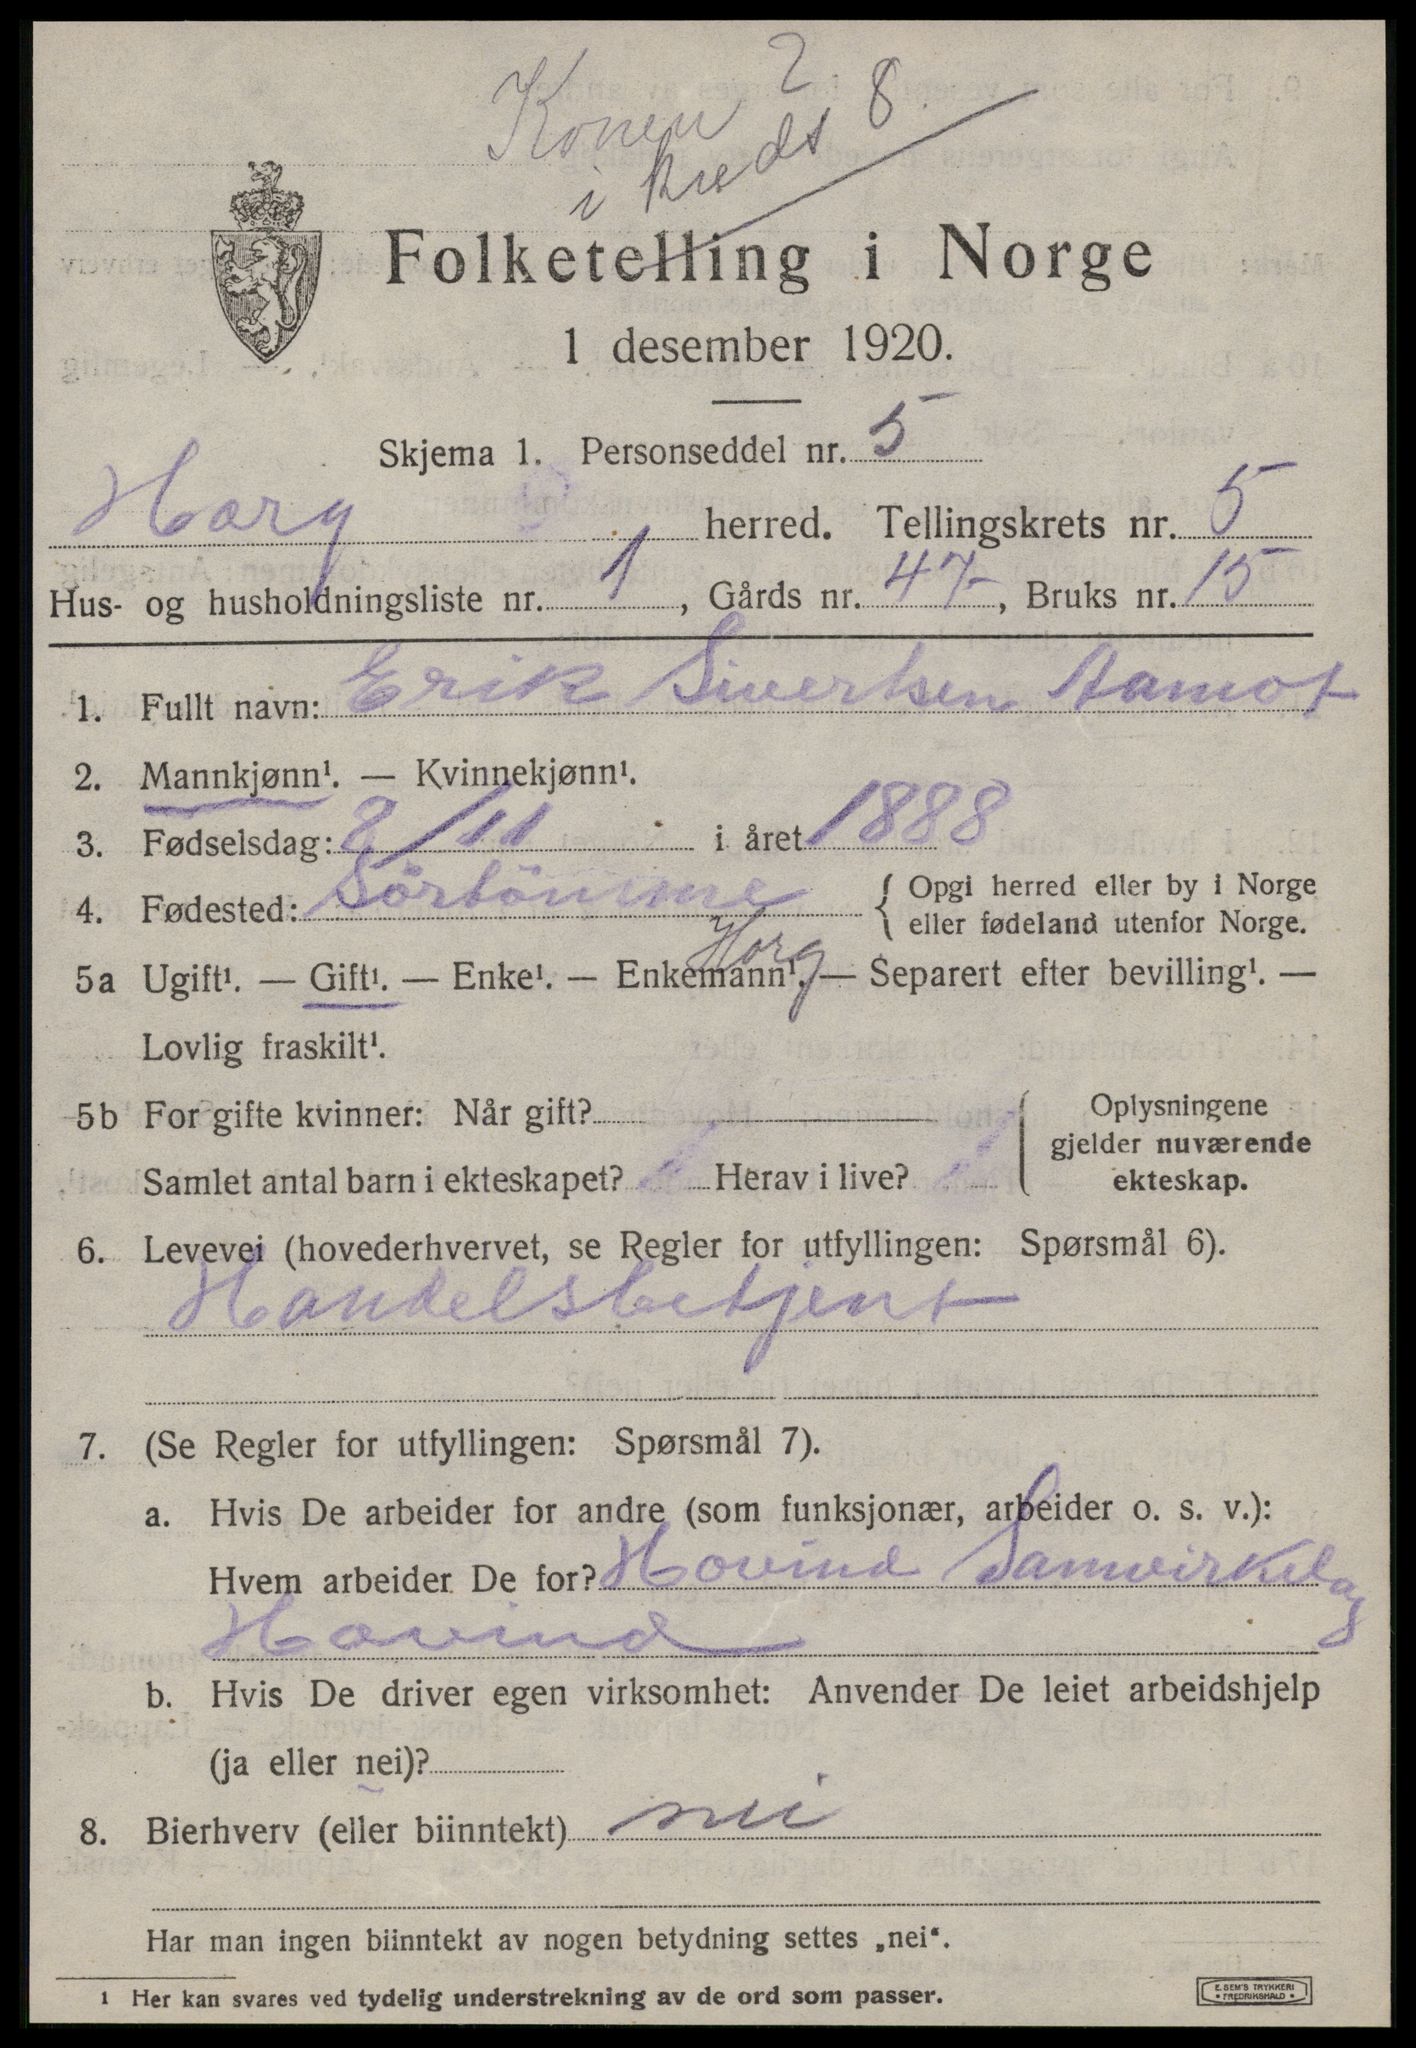 Konen ?
i kreds 8.
Folketelling i Norge
1 desember 1920.
Skjema 1. Personseddel nr. 5
Horg herred. Tellingskrets nr. 5
Hus- og husholdningsliste nr. 1, Gårds nr. 47, Bruks nr. 15
1. Fullt navn: Erik Siverksen Aamot
2. Mannkjønn¹. — Kvinnekjønn¹.
3. Fødselsdag: 8/11 i året 1888
4. Fødested: Sörtömme { Opgi herred eller by i Norge
eller fødeland utenfor Norge.
Horg
5a Ugift¹. — Gift¹. — Enke¹. — Enkemann¹. — Separert efter bevilling¹. —
Lovlig fraskilt¹.
5b For gifte kvinner: Når gift?
Samlet antal barn i ekteskapet? Herav i live?
Oplysningene
gjelder nuværende
ekteskap.
6. Levevei (hovederhvervet, se Regler for utfyllingen: Spørsmål 6).
Handelsbetjent
7. (Se Regler for utfyllingen: Spørsmål 7).
a. Hvis De arbeider for andre (som funksjonær, arbeider o. s. v.):
Hvem arbeider De for? Hovind Samvirkelag
Hovind
b. Hvis De driver egen virksomhet: Anvender De leiet arbeidshjelp
(ja eller nei)?
8. Bierhverv (eller biinntekt) nei
Har man ingen biinntekt av nogen betydning settes „nei“.
1 Her kan svares ved tydelig understrekning av de ord som passer.
E. SEM'S TRYKKERI
• FREDRIKSHALD •